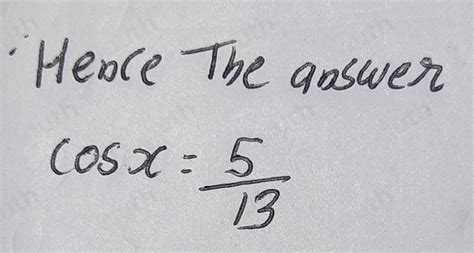 Hence The answer
cos x = 5/13